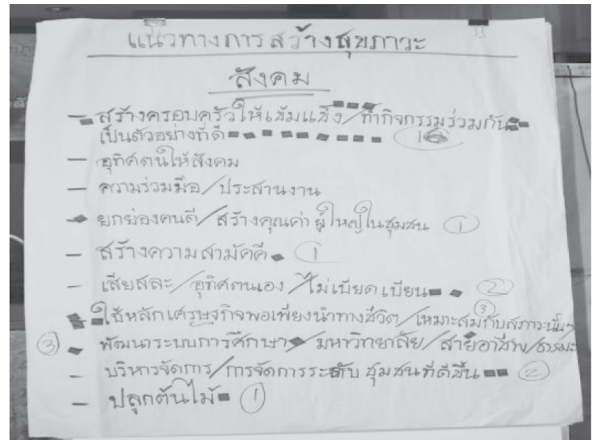 แนวทางการสร้างสุขภาวะ
สังคม
- สร้างครอบครัวให้เข้มแข็ง/ทำกิจกรรมร่วมกัน
เป็นตัวอย่างที่ดี
- อุทิศตนให้สังคม
- ความร่วมมือ/ประสานงาน
- ยกย่องคนดี/สร้างคุณค่าผู้ใหญ่ในชุมชน ①
- สร้างความสามัคคี ①
- เสียสละ/อุทิศตนเอง/ไม่เบียดเบียน ②
- ใช้หลักเศรษฐกิจพอเพียงนำทางชีวิต/เหมาะสมกับสภาวะนั้นๆ ③
③ - พัฒนาระบบการศึกษา/มหาวิทยาลัย/สายอาชีพ/ธรรมะ
- บริหารจัดการ/การจัดการระดับชุมชนที่ดีขึ้น ②
- ปลูกต้นไม้ ①